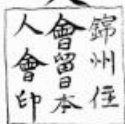 錦州住
會留日本
人會印